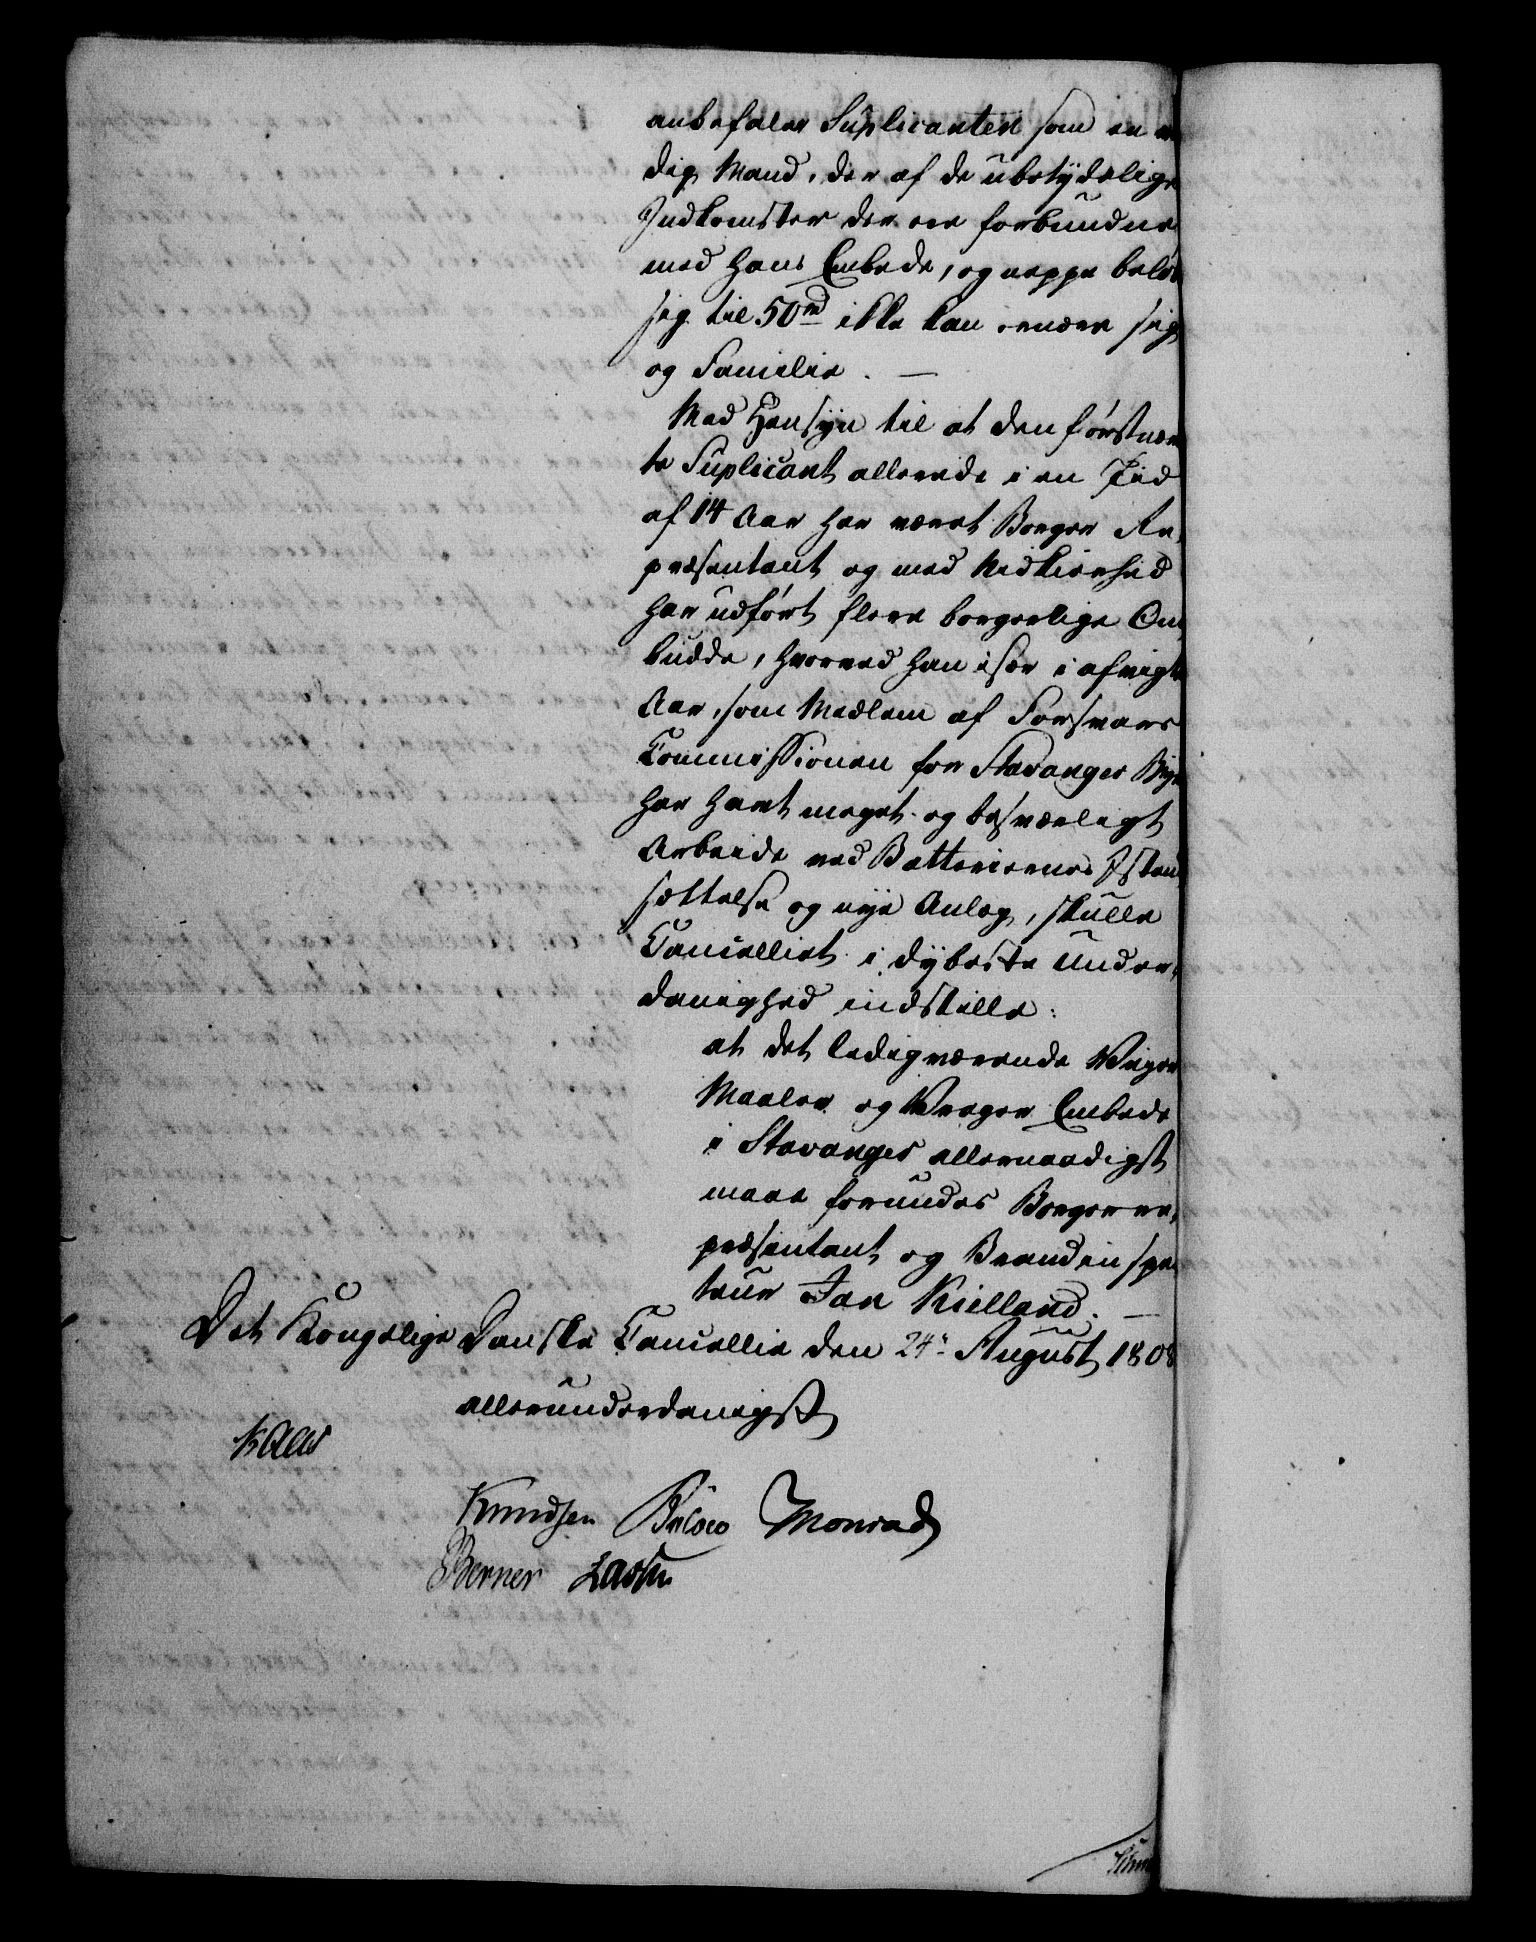 anbefaler Suplicanten som en
dig Mand, der af de ubetydelige
Indkomster der ere forbundne
med hans Embede, og neppe belø
sig til 50 rd ikke kan ernære sig
og Familie. —
Med Hensyn til at den førstnæv
te Suplicant allerede i en Tid
af 14 Aar har været Borger Re,
præsentant og med Nidkierhed
har udført flere borgerlige Om
budde, hvorved han især i afvigte
Aar, som Medlem af Forsvars
Commissionen for Stavanger Bye
har havt meget og besværligt
Arbeide ved Batteriernes Istand
sættelse og nye Anlæg, skulle
Cancelliet i dybeste Under,
danighed indstille:
at det ledigværende Veier
Maaler og Vrager Embede
i Stavanger allernaadigst
maae forundes Borgerre,
præsentant og Brandinspec
teur Jan Kielland. —
Det Kongelige Danske Cancellie den 24de August 1808
allerunderdanigst
Kaas
Knudsen Bülow Monrad
Berner Lassen